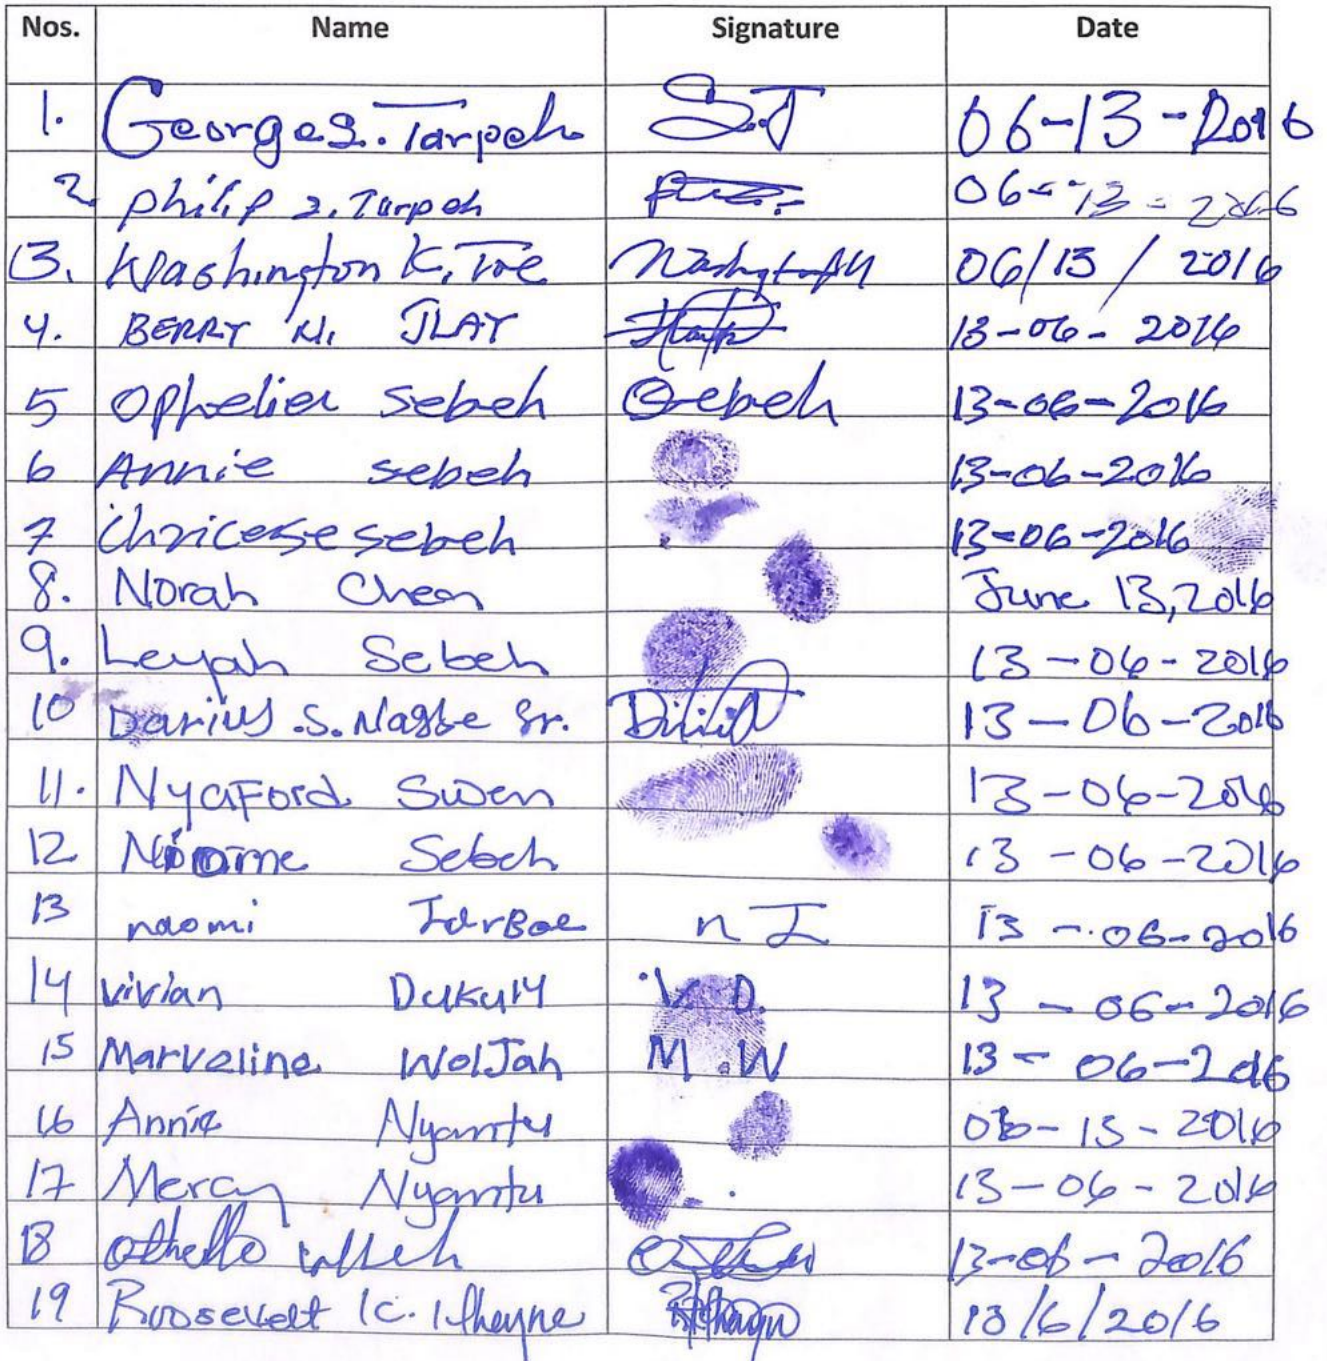 Nos. Name Signature Date
1. George S. Tarpeh S.T 06-13-2016
2. philip z. Tarpeh 06-13-2016
3. Washington K. Toe 06/13/2016
4. BERRY N. JLAY 13-06-2016
5 Ophelier Sebeh Oebeh 13-06-2016
6 Annie sebeh 13-06-2016
7 sebeh 13-06-2016
8. Norah Chea June 13, 2016
9. Leyah Sebeh 13-06-2016
10 Darius .S. Nagbe Sr. 13-06-2016
11. NyaFord Swen 13-06-2016
12 Sebeh 13-06-2016
13 naomi JarBoe n J 13-06-2016
14 vivian Dukuly V D. 13-06-2016
15 Marveline WolJah M.W 13-06-2016
16 Annie Nyantu 06-13-2016
17 Mercy Nyantu 13-06-2016
18 Othello 13-06-2016
19 Roosevelt K. 13/6/2016